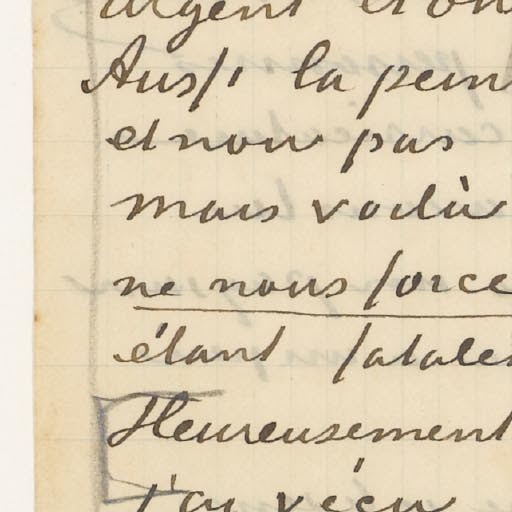 argent et on
Aussi la pein
et non pas
mais voilà
ne nous force
étant fatale
Heureusement
j'ai vécu